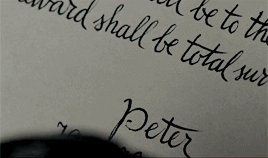 ll be to th
award shall be total sur
Peter